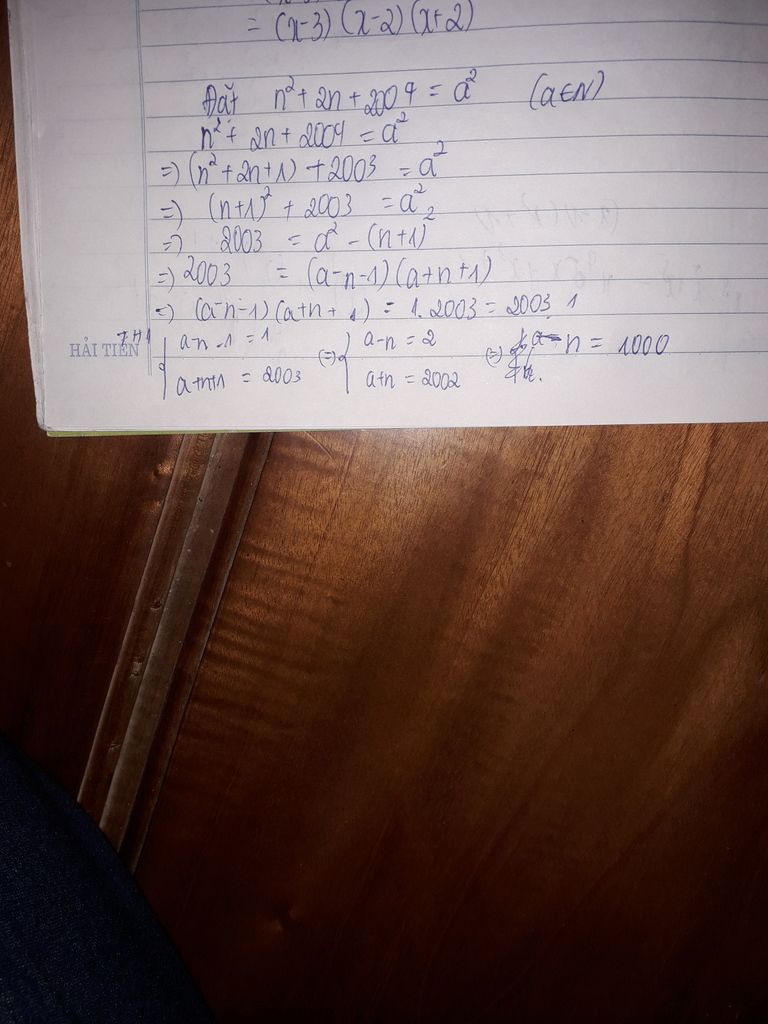 = (x-3) (x-2) (x+2)
Đặt n² + 2n + 2004 = a² (a∈N)
n² + 2n + 2004 = a²
=) (n² + 2n + 1) + 2003 = a²
=) (n+1)² + 2003 = a²
=) 2003 = a² - (n+1)²
=) 2003 = (a-n-1) (a+n+1)
=) (a-n-1) (a+n+1) = 1. 2003 = 2003. 1
TH1
HẢI TIẾN
{ a-n-1 = 1 (=) { a-n = 2 (=) n = 1000
a+n+1 = 2003 a+n = 2002